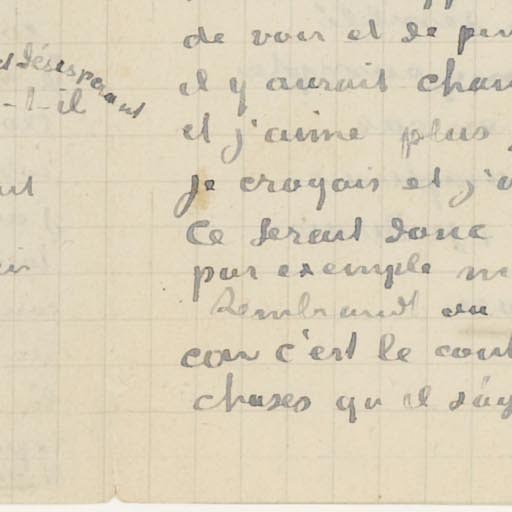 désesperant
-t-il
de voir et de
il y aurait
et j'aime plus
je croyais et
Ce serait donc
par exemple
Rembrandt ou
car c'est le
choses qu il